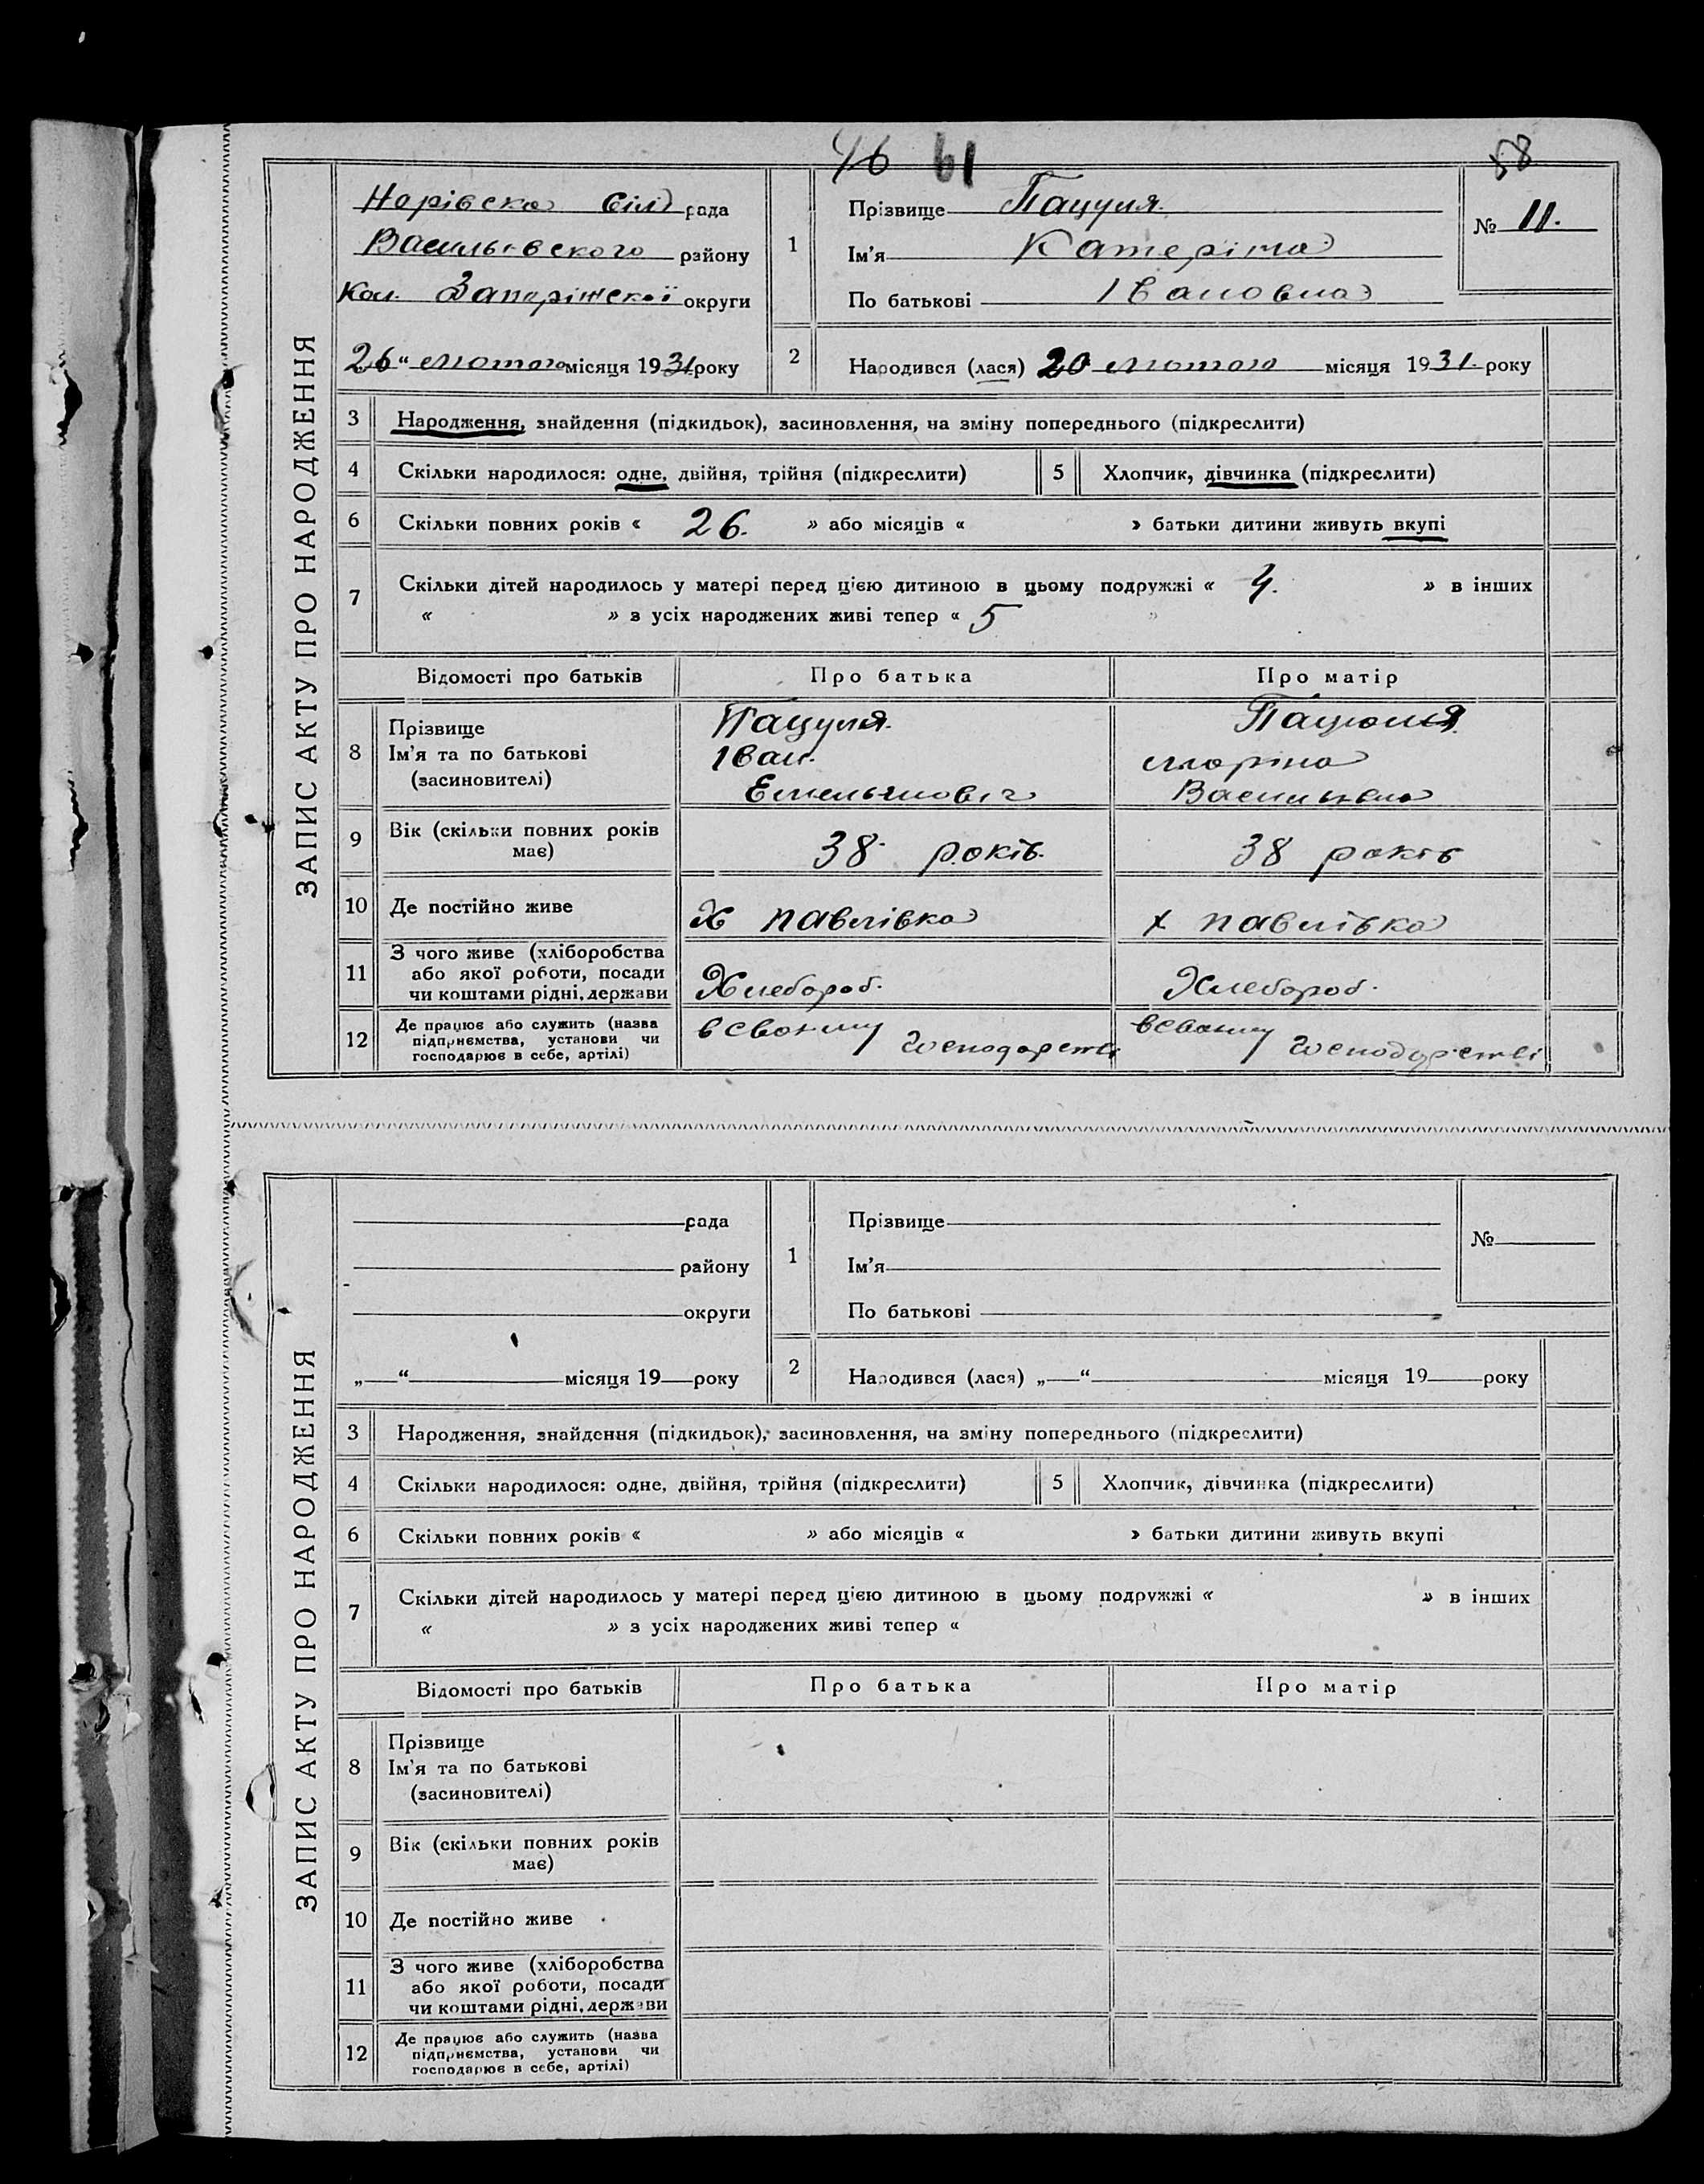 46 61 58
ЗАПИС АКТУ ПРО НАРОДЖЕННЯ
Норівска сіл рада
Васильвского району
Кол. Запоріжскої округи
26 “ лютого місяця 1931 року
1
Прізвище Пацуля
Ім'я Катеріна
По батькові Івановна
№ 11.
2
Народився (лася) 20 лютого місяця 1931 року
3 Народження, знайдення (підкидьок), засиновлення, на зміну попереднього (підкреслити)
4 Скільки народилося: одне, двійня, трійня (підкреслити) 5 Хлопчик, дівчинка (підкреслити)
6 Скільки повних років « 26. » або місяців « » батьки дитини живуть вкупі
7 Скільки дітей народилось у матері перед цією дитиною в цьому подружжі « 4. » в інших
« » з усіх народжених живі тепер « 5 »
Відомості про батьків Про батька Про матір
8 Прізвище Пацуля Пацюля
Ім'я та по батькові Іван. Маріна
(засновителі) Емельянович Васильвна
9 Вік (скільки повних років має) 38 років. 38 років
10 Де постійно живе Х Павлівка х Павлівка
11 З чого живе (хліборобства
або якої роботи, посади
чи коштами рідні, держави Хлебороб. Хлебороб.
12 Де працює або служить (назва
підприємства, установи чи
господарює в себе, артілі) всвойму господарстві всвойму господарстві
ЗАПИС АКТУ ПРО НАРОДЖЕННЯ
рада
району
округи
„ “ місяця 19 року
1
Прізвище
Ім'я
По батькові
№
2
Народився (лася) „ “ місяця 19 року
3 Народження, знайдення (підкидьок), засиновлення, на зміну попереднього (підкреслити)
4 Скільки народилося: одне, двійня, трійня (підкреслити) 5 Хлопчик, дівчинка (підкреслити)
6 Скільки повних років « » або місяців « » батьки дитини живуть вкупі
7 Скільки дітей народилось у матері перед цією дитиною в цьому подружжі « » в інших
« » з усіх народжених живі тепер «
Відомості про батьків Про батька Про матір
8 Прізвище
Ім'я та по батькові
(засиновителі)
9 Вік (скільки повних років
має)
10 Де постійно живе
11 З чого живе (хліборобства
або якої роботи, посади
чи коштами рідні, держави
12 Де працює або служить (назва
підприємства, установи чи
господарює в себе, артілі)